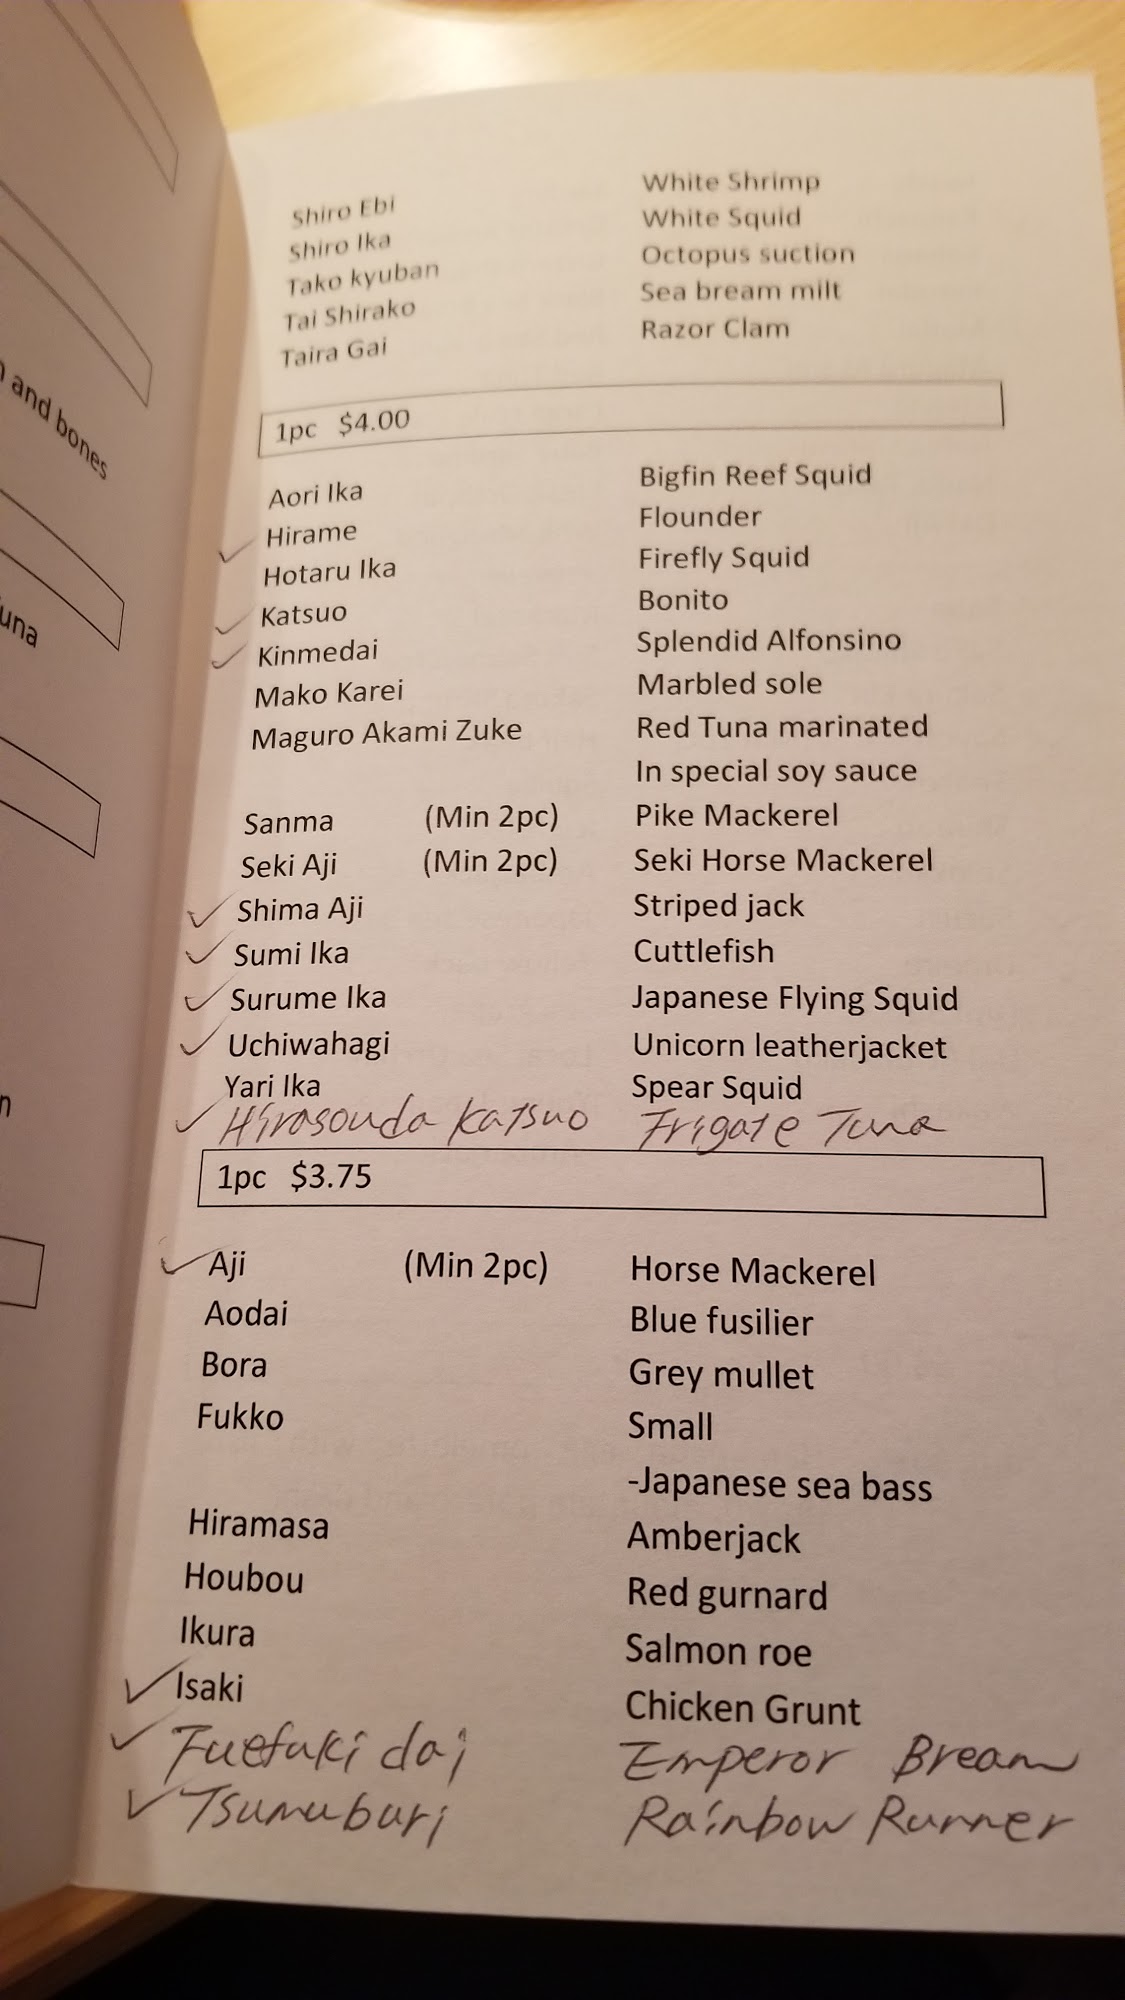 and bones
una
n
Shiro Ebi White Shrimp
Shiro Ika White Squid
Tako kyuban Octopus suction
Tai Shirako Sea bream milt
Taira Gai Razor Clam
1pc $4.00
Aori Ika Bigfin Reef Squid
✓ Hirame Flounder
Hotaru Ika Firefly Squid
✓ Katsuo Bonito
✓ Kinmedai Splendid Alfonsino
Mako Karei Marbled sole
Maguro Akami Zuke Red Tuna marinated
In special soy sauce
Sanma (Min 2pc) Pike Mackerel
Seki Aji (Min 2pc) Seki Horse Mackerel
✓ Shima Aji Striped jack
✓ Sumi Ika Cuttlefish
✓ Surume Ika Japanese Flying Squid
✓ Uchiwahagi Unicorn leatherjacket
Yari Ika Spear Squid
✓ Hirasouda Katsuo Frigate Tuna
1pc $3.75
✓ Aji (Min 2pc) Horse Mackerel
Aodai Blue fusilier
Bora Grey mullet
Fukko Small
-Japanese sea bass
Hiramasa Amberjack
Houbou Red gurnard
Ikura Salmon roe
✓ Isaki Chicken Grunt
✓ Fuefuki dai Emperor Bream
✓ Tsumuburi Rainbow Runner